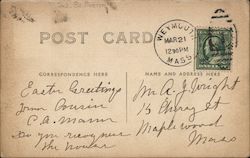 POST CARD
WEYMOUTH
MAR 21
12 30 PM
MASS.
CORRESPONDENCE HERE
NAME AND ADDRESS HERE
Easter Greetings
from Cousin
C. A. Mann
Do you
the
Mr A. J. Wright
15 Cherry St
Maplewood
Mass